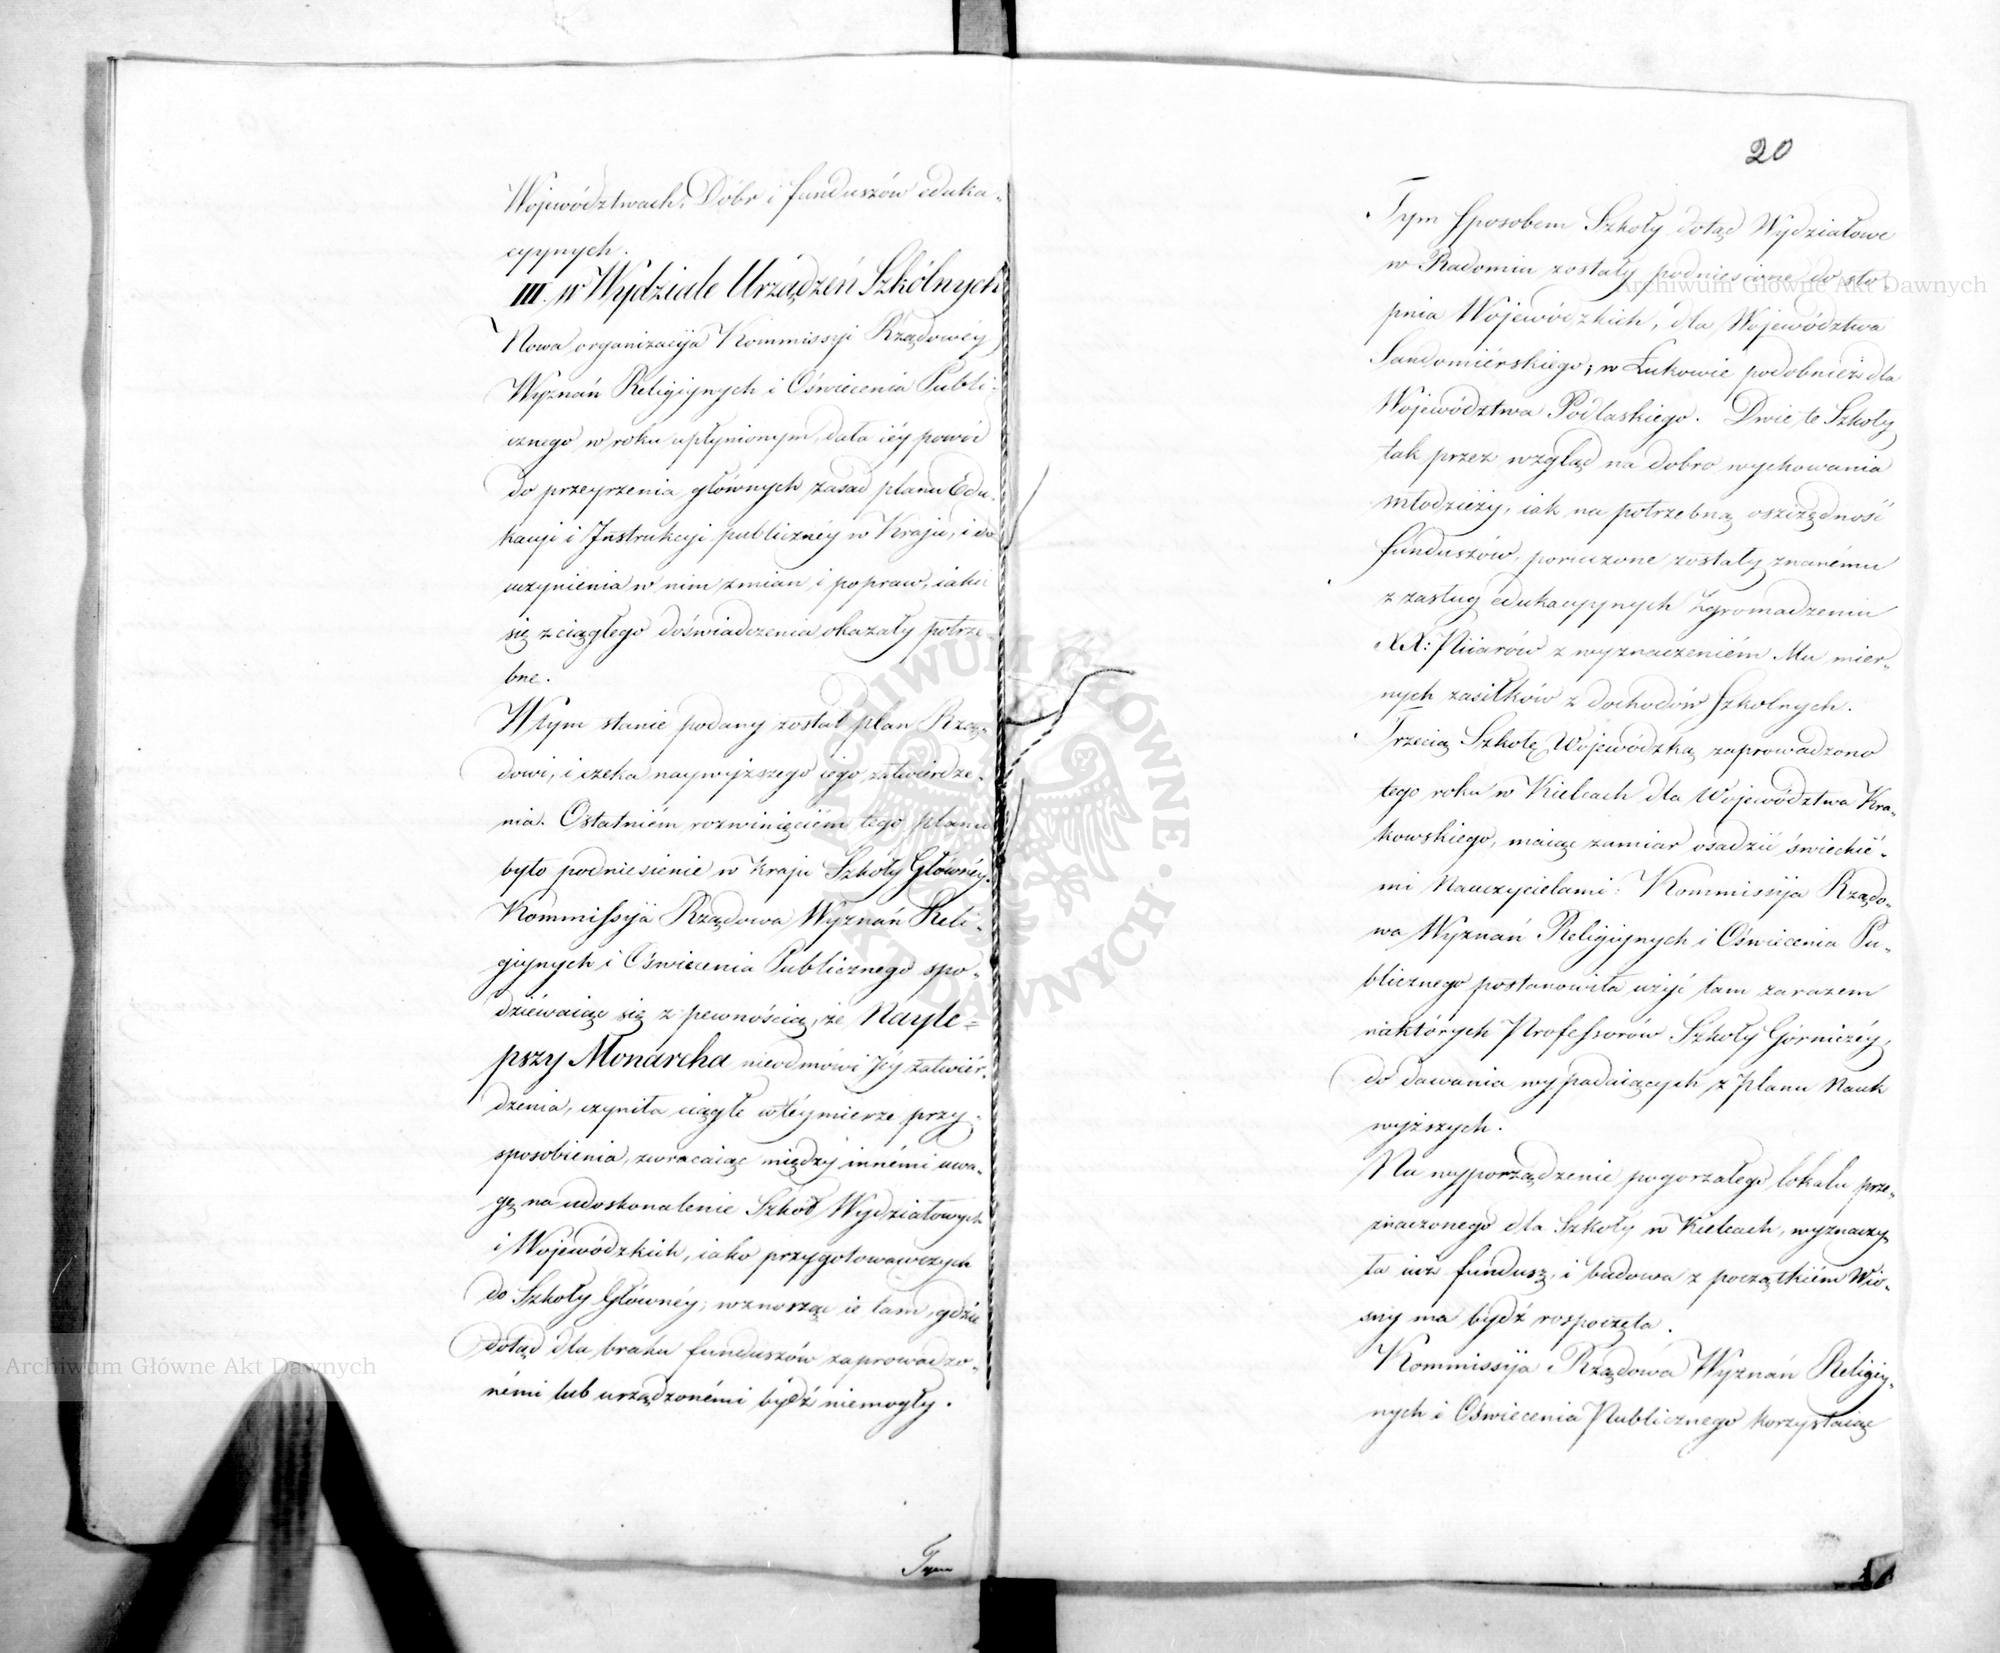 Województwach, Dóbr i funduszów eduka-
cyjnych.
III. W Wydziale Urządzeń Szkólnych
Nowa organizacyja Kommissyi Rządowéy
Wyznań Religijnych i Oświecenia Publi-
cznego w roku upłynionym, data iéy powód
do przeyrzenia głównych zasad planu Edu-
kacyi i Instrukcyi publicznéy w Kraju, i do
uczynienia w nim zmian i popraw, iakie
się z ciągłego doświadczenia okazały potrze-
bne.
W tym stanie podany został plan Rzą-
dowi, i czeka naywyższego iego zatwierdze-
nia. Ostatniém rozwinięciém tego planu
było podniesienie w Kraju Szkoły Głównéy.
Kommissyja Rządowa Wyznań Reli-
gijnych i Oświecenia Publicznego spo-
dziéwaiąc się z pewnością, że Nayle=
pszy Monarcha nieodmówi Jéy zatwiér-
dzenia, czyniła ciągłe w téymierze przy-
sposobienia, zwracaiąc między innémi uwa-
gę na udoskonalenie Szkół Wydziałowych
i Wojewódzkich, iako przygotowawczych
do Szkoły Głównéy; wznosząc ie tam, gdzie
dotąd dla braku funduszów zaprowadzo-
némi lub urządzonémi bydź niemogły.
Tym
20
Tym sposobem Szkoły dotąd Wydziałowe
w Radomiu zostały podniesione do sto-
pnia Wojewódzkich, dla Województwa
Sandomiérskiego; w Łukowie podobnież dla
Województwa Podlaskiego. Dwie te Szkoły
tak przez wzgląd na dobro wychowania
młodzieży, iak na potrzebną oszczędność
funduszów, poruczone zostały znanému
z zasług edukacyjnych Zgromadzeniu
XX: Piiarów z wyznaczeniém Mu mier-
nych zasiłków z dochodów Szkolnych.
Trzecią Szkołę Wojewódzką zaprowadzono
tego roku w Kielcach dla Województwa Kra-
kowskiego, maiąc zamiar osadzić świeckié-
mi Nauczycielami: Kommissyja Rządo-
wa Wyznań Religijnych i Oświecenia Pu-
blicznego postanowiła użyć tam zarazem
niektórych Professorów Szkoły Górniczéy,
do dawania wypadaiących z planu Nauk
wyższych.
Na wyporządzenie pogorzałego lokalu prze-
znaczonego dla Szkoły w Kielcach, wyznaczy
ła iuż fundusz, i budowa z początkiém Wio-
sny ma bydź rospoczęta.
Kommissyja Rządowa Wyznań Religij-
nych i Oświecenia Publicznego korzystaiąc
Archiwum Główne Akt Dawnych
Archiwum Główne Akt Dawnych
ARCHIWUM GŁÓWNE AKT DAWNYCH